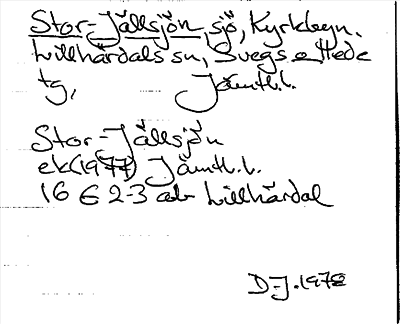 Stor-Jällsjön, sjö, Kyrkbyn.
Lillhärdals sn, Svegs o Hede
tg, Jämtl.l.
Stor-Jällsjön
ek(1977) Jämtl.l.
16 E 2-3 ab Lillhärdal
D-J.1978